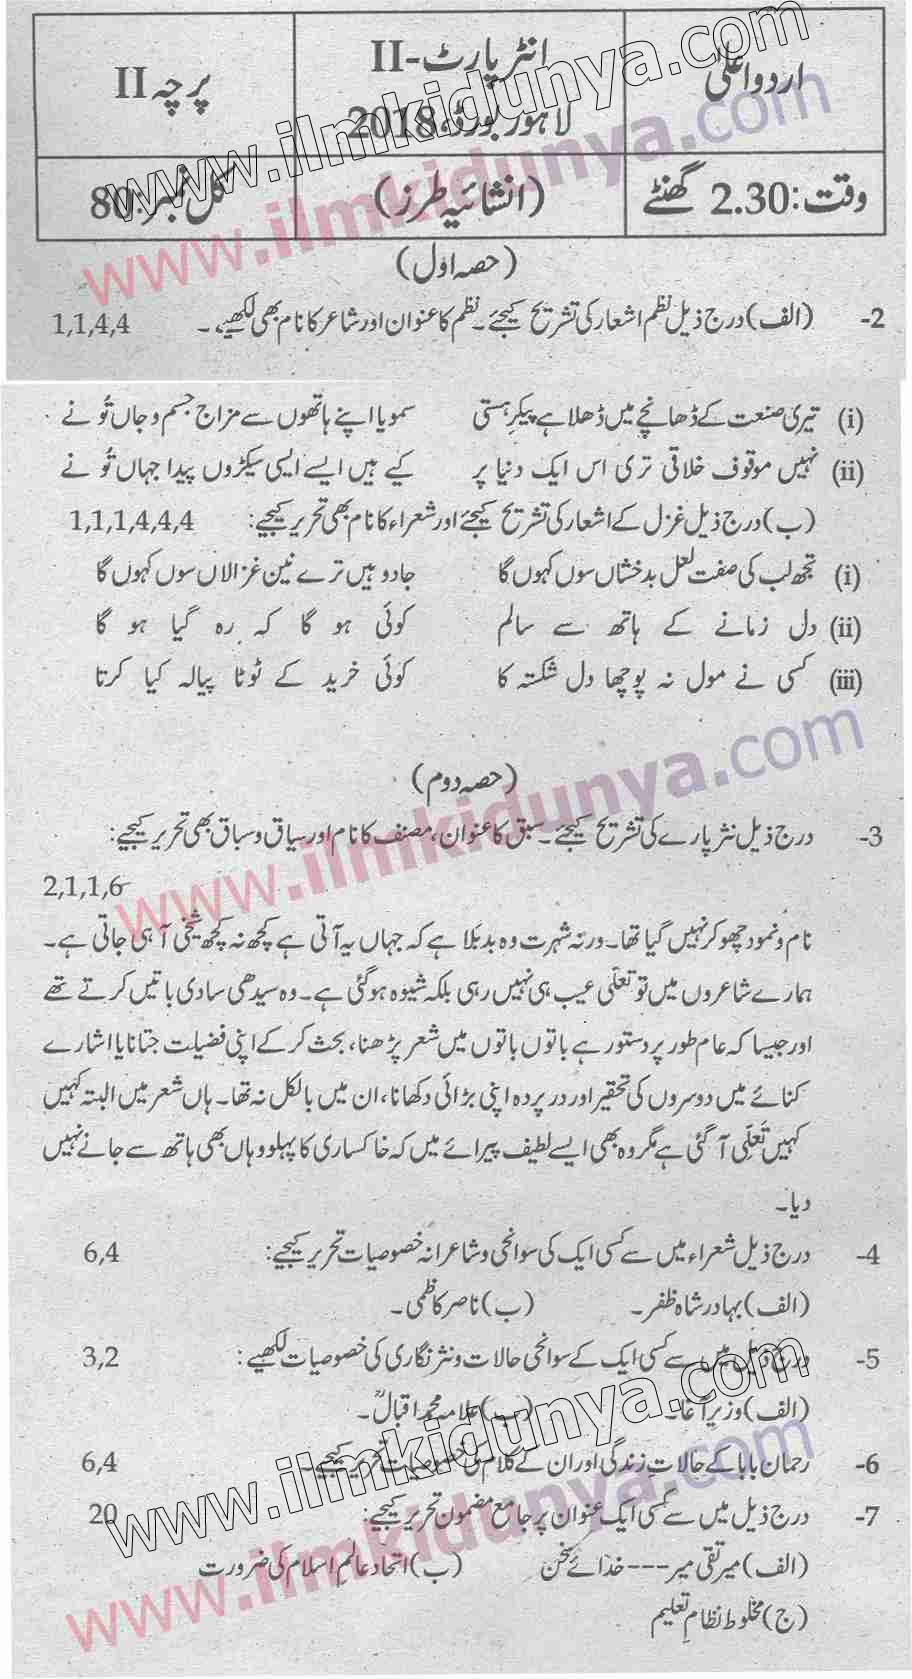 اردو اعلیٰ
انٹر پارٹ-II
لاہور بورڈ، 2018
پرچہ II
وقت: 2.30 گھنٹے
(انشائیہ طرز)
کل نمبر: 80
(حصہ اول)
2- (الف) درج ذیل نظم اشعار کی تشریح کیجئے۔ نظم کا عنوان اور شاعر کا نام بھی لکھیے۔ 1,1,4,4
(i) تیری صنعت کے ڈھانچے میں ڈھلا ہے پیکرِ ہستی سمویا اپنے ہاتھوں سے مزاج جسم و جاں تُو نے
(ii) نہیں موقوف خلاقی تری اس ایک دنیا پر کیے ہیں ایسے ایسے سیکڑوں پیدا جہاں تُو نے
(ب) درج ذیل غزل کے اشعار کی تشریح کیجئے اور شعراء کا نام بھی تحریر کیجیے: 1,1,1,4,4,4
(i) تجھ لب کی صفت لعل بدخشاں سوں کہوں گا جادو ہیں ترے نین غزالاں سوں کہوں گا
(ii) دل زمانے کے ہاتھ سے سالم کوئی ہو گا کہ رہ گیا ہو گا
(iii) کسی نے مول نہ پوچھا دل شکستہ کا کوئی خرید کے ٹوٹا پیالہ کیا کرتا
(حصہ دوم)
3- درج ذیل نثر پارے کی تشریح کیجئے۔ سبق کا عنوان، مصنف کا نام اور سیاق و سباق بھی تحریر کیجیے:
2,1,1,6
نام و نمود چھو کر نہیں گیا تھا۔ ورنہ شہرت وہ بد بَلا ہے کہ جہاں یہ آتی ہے کچھ نہ کچھ شیخی آ ہی جاتی ہے۔
ہمارے شاعروں میں تو تعلّی عیب ہی نہیں رہی بلکہ شیوہ ہو گئی ہے۔ وہ سیدھی سادی باتیں کرتے تھے
اور جیسا کہ عام طور پر دستور ہے باتوں باتوں میں شعر پڑھنا، بحث کر کے اپنی فضیلت جتانا یا اشارے
کنائے میں دوسروں کی تحقیر اور درپردہ اپنی بڑائی دکھانا، ان میں بالکل نہ تھا۔ ہاں شعر میں البتہ کہیں
کہیں تَعلّی آ گئی ہے مگر وہ بھی ایسے لطیف پیرائے میں کہ خاکساری کا پہلو وہاں بھی ہاتھ سے جانے نہیں
دیا۔
4- درج ذیل شعراء میں سے کسی ایک کی سوانحی و شاعرانہ خصوصیات تحریر کیجیے: 6,4
(الف) بہادر شاہ ظفر۔ (ب) ناصر کاظمی۔
5- درج ذیل میں سے کسی ایک کے سوانحی حالات و نثر نگاری کی خصوصیات لکھیے: 3,2
(الف) وزیر آغا۔ (ب) علامہ محمد اقبالؒ۔
6- رحمان بابا کے حالاتِ زندگی اور ان کے کلام کی خصوصیات تحریر کیجیے۔ 6,4
7- درج ذیل میں سے کسی ایک عنوان پر جامع مضمون تحریر کیجیے: 20
(الف) میر تقی میر --- خدائے سخن (ب) اتحاد عالم اسلام کی ضرورت
(ج) مخلوط نظامِ تعلیم
www.ilmkidunya.com
www.ilmkidunya.com
www.ilmkidunya.com
www.ilmkidunya.com
www.ilmkidunya.com